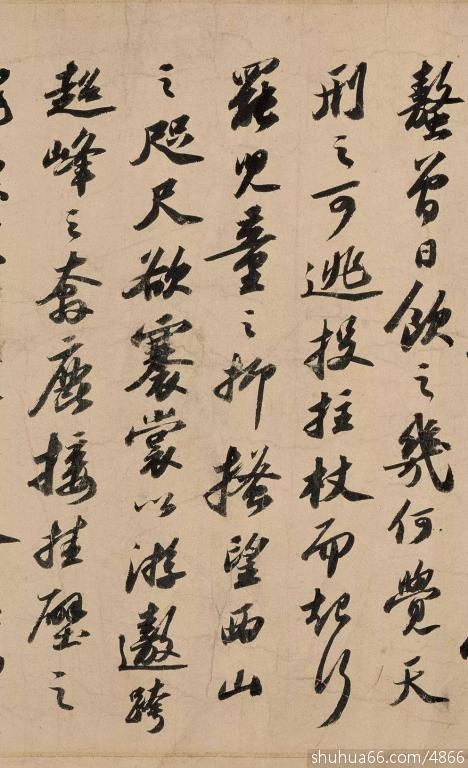 螯曾日飲之幾何覺天
刑之可逃投拄杖而起行
罷兒童之抑搔望西山
之咫尺欲褰裳以游遨跨
超峰之奔鹿接挂壁之
shuhua66.com/4866